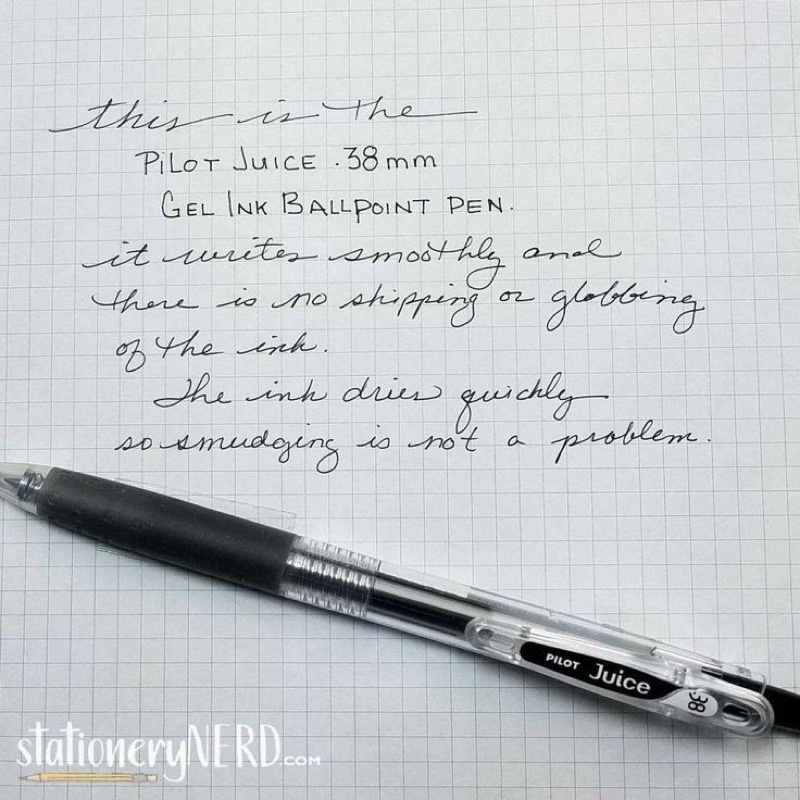 this is the
PILOT JUICE .38mm
GEL INK BALLPOINT PEN.
it writes smoothly and
there is no skipping or globbing
of the ink.
The ink dries quickly
so smudging is not a problem.
PILOT Juice 38
stationeryNERD.COM